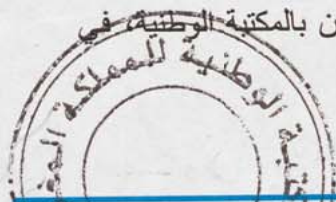 ن بالمكتبة الوطنية، في
تبة الوطنية للمملكة المغر